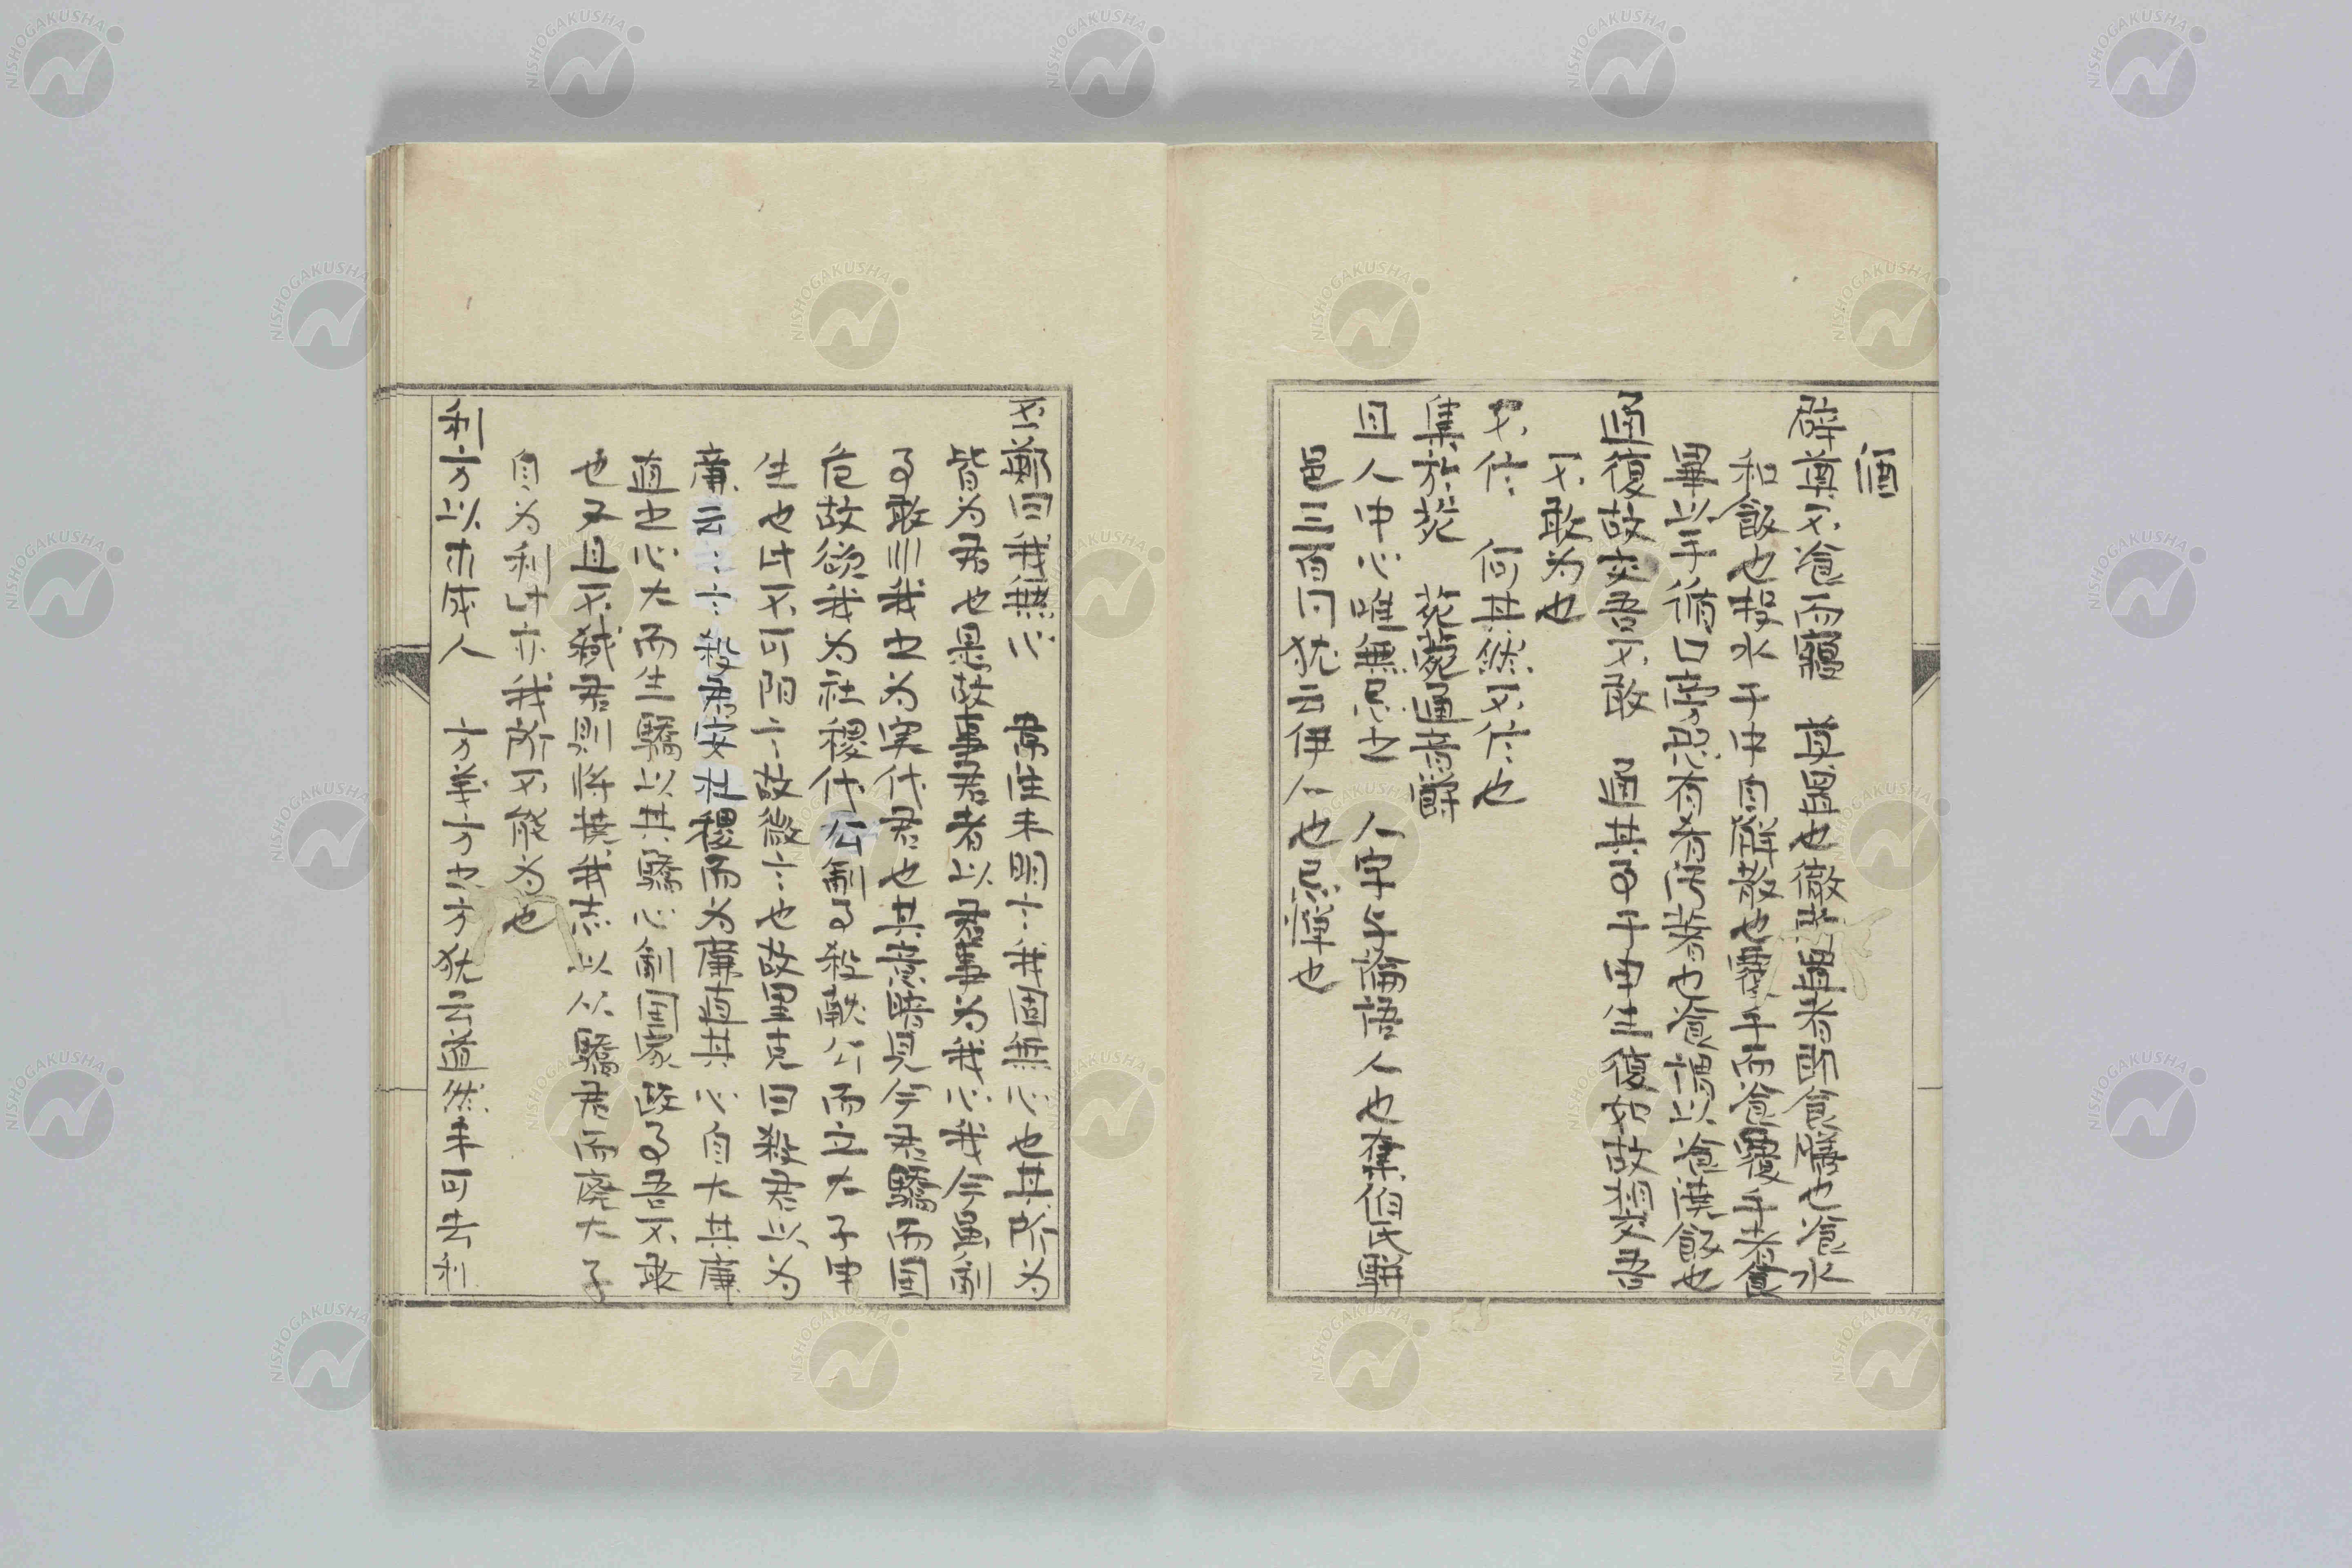 酒
辟奠不飧而寢　奠置也徹其奠者即食膳也飧水
和飯也投水于中自解散也覆手而飧覆手者食
畢以手循口旁恐有肴汚著也飧謂以飧澆飯也
通復故交吾不敢　通其事于申生復如故相交吾
不敢為也
不作　何其然不作也
集於苑　苑菀通音鬱
且人中心唯無忌之　人字与論語人也奪伯氏駢
邑三百同猶云伊人也忌憚也
丕鄭曰我無心　韋注未明云我固無心也其所為
皆為君也是故事君者以君事為我心我今虽制
事敢叫我也為実代君也其意驕見今君驕而国
危故欲我為社稷代公制事殺献公而立大子申
生也此不可陷云故徴云也故里克曰殺君以為
廉云云殺君安社稷而為廉直其心自大其廉
直也心大而生驕以其驕心制国家政事吾不敢
也又且不弑君則将撓我志以从驕君而廃大子
自為利此亦我所不能為也
利方以求成人　方義方也方猶云道然未可去利